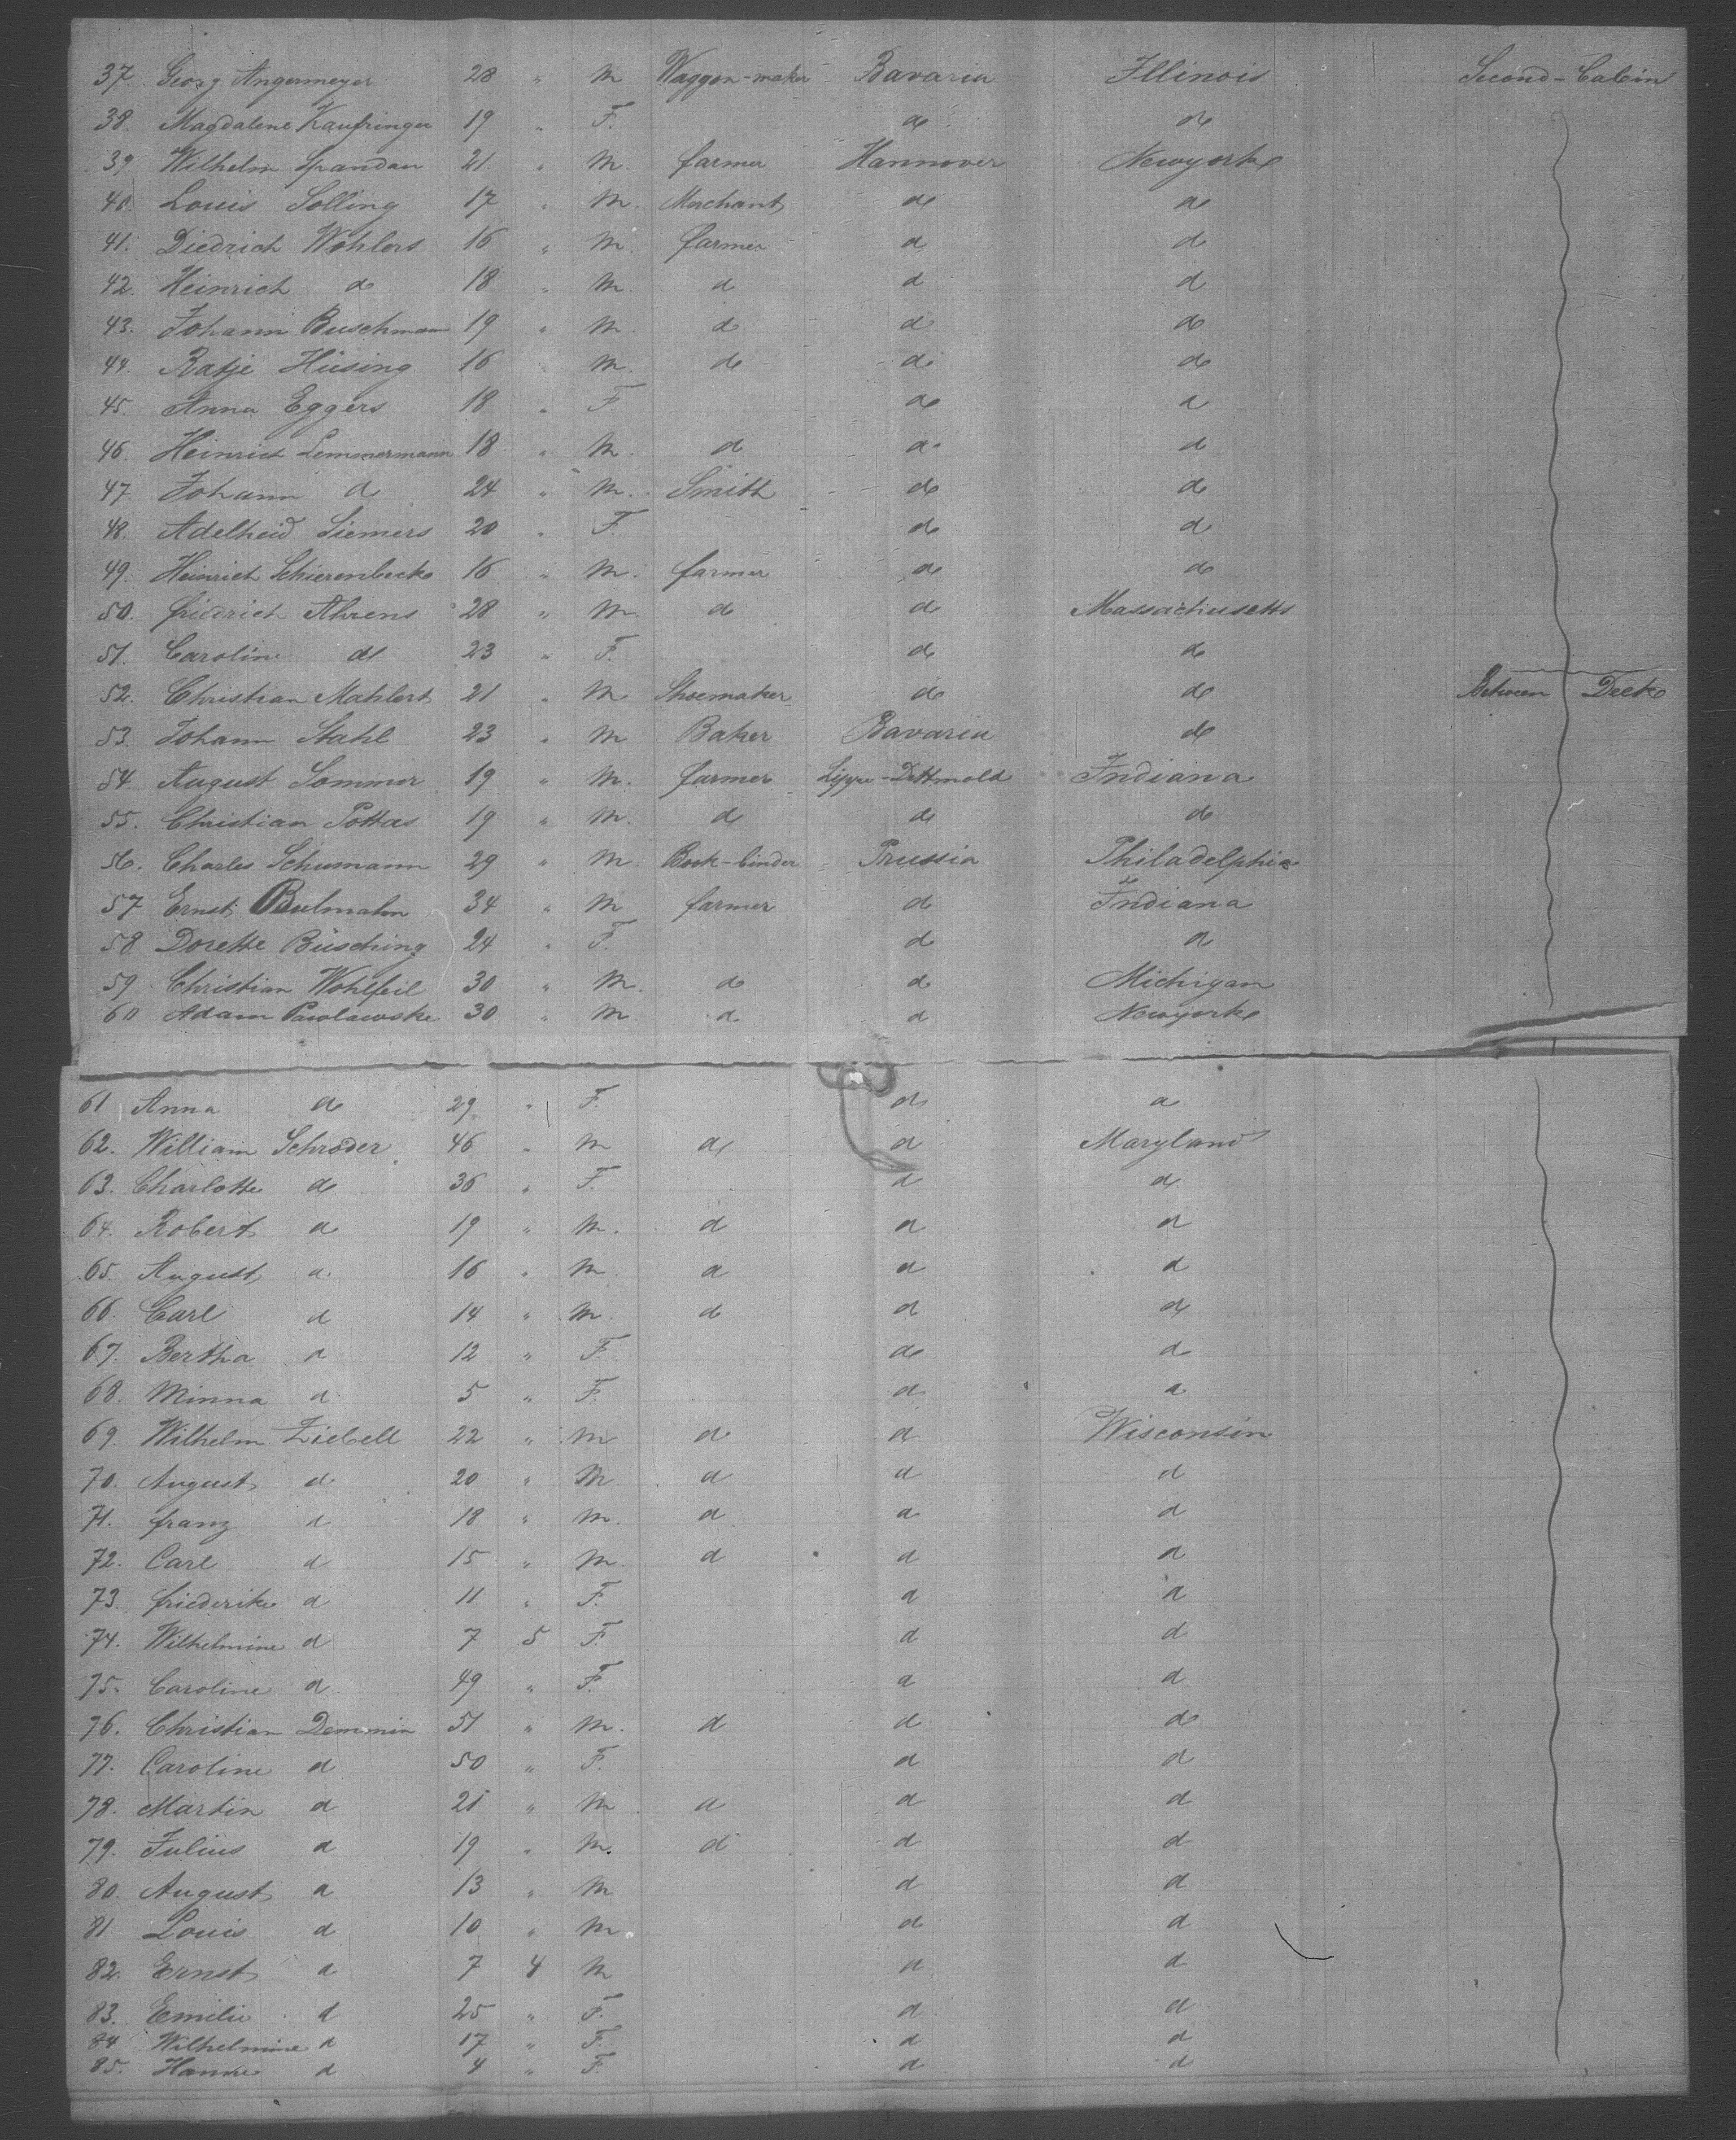 37. Georg Angermeyer 28 " M Waggon-maker Bavaria Illinois Second-Cabin
38. Magdalene Kaufringer 19 " F. do do
39. Wilhelm Spandau 21 " M. farmer Hannover Newyork
40. Louis Solling 17 " M. Merchant do do
41. Diedrich Wohlers 16 " M. farmer d d
42. Heinrich do 18 " M. d d d
43. Johann Buschmann 19 " M. d d do
44. Ratje Hüsing 16 " M. do do do
45. Anna Eggers 18 " F do d
46. Heinrich Lemmermann 18 " M. d d d
47. Johann d 24 " M. Smith do do
48. Adelheid Siemers 20 " F. do d
49. Heinrich Schierenbeck 16 " M. farmer do do
50. friedrich Ahrens 28 " M. d d Massachusetts
51. Caroline d 23 " F. do do
52. Christian Mahlert 21 " M Shoemaker do do Between Deck
53. Johann Stahl 23 " M Baker Bavaria do
54. August Sommer 19 " M. farmer Lippe-Dettmold Indiana
55. Christian Pottas 19 " M. d do do
56. Charles Schumann 29 " M Book-binder Prussia Philadelphia
57 Ernst Bulmahn 34 " M farmer d Indiana
58 Dorette Büsching 24 " F. d d
59. Christian Wohlfeil 30 " M. d d Michigan
60 Adam Pawlawske 30 " M. d d Newyork
61 Anna do 29 " F. d d
62. William Schroder 46 " M d d Maryland
63. Charlotte do 36 " F. d d
64. Robert d 19 " M. d d d
65. August d 16 " M. d d d
66. Carl d 14 " M. d d d
67. Bertha d 12 " F. do d
68. Minna d 5 " F. d d
69. Wilhelm Ziebell 22 " M d d Wisconsin
70. August d 20 " M d d d
71. franz d 18 " M. d d d
72. Carl d 15 " M. d d d
73. friederike d 11 " F. d d
74. Wilhelmine d 7 5 F d d
75. Caroline d 49 " F. d d
76. Christian Demmin 51 " M. d d d
77. Caroline d 50 " F. d d
78. Martin d 21 " M d d d
79. Julius d 19 " M. d d d
80. August d 13 " M d d
81 Louis d 10 " M. d d
82. Ernst d 7 4 M d d
83. Emilie d 25 " F. d d
84 Wilhelmine d 17 " F. d d
85. d 4 " F. d d